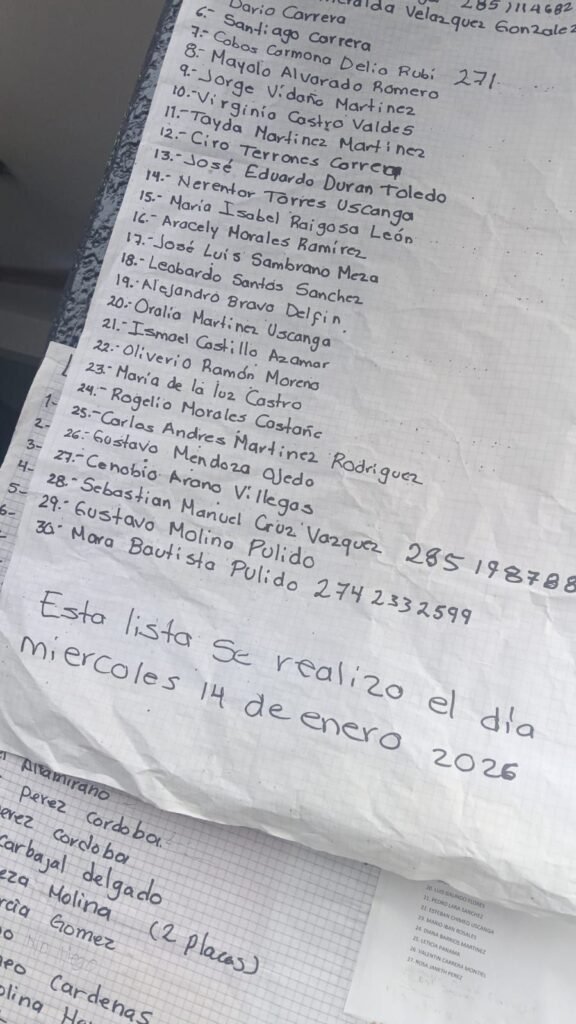 Velazquez Gonzalez
Dario Carrera
6.- Santiago Carrera
7.- Cobos Carmona Delio Rubi 271
8.- Mayolo Alvarado Romero
9.- Jorge Vidaña Martinez
10.- Virginia Castro Valdes
11.- Tayda Martinez Martinez
12.- Ciro Terrones Correa
13.- José Eduardo Duran Toledo
14.- Nerentor Torres Uscanga
15.- María Isabel Raigosa León
16.- Aracely Morales Ramírez
17.- José Luis Sambrano Meza
18.- Leobardo Santos Sanchez
19.- Alejandro Bravo Delfin.
20.- Oralia Martinez Uscanga
21.- Ismael Castillo Azamar
22.- Oliverio Ramón Moreno
23.- María de la luz Castro
24.- Rogelio Morales Castañe
25.- Carlos Andres Martinez Rodriguez
26.- Gustavo Mendoza Ojedo
27.- Cenobio Arano Villegas
28.- Sebastian Manuel Cruz Vazquez 285 198788
29.- Gustavo Molina Pulido
30.- Mara Bautista Pulido 2742332599
Esta lista se realizo el día
miercoles 14 de enero 2026
1-
2-
3-
4-
5-
6-
Altamirano
perez cordoba
perez cordoba
carbajal delgado
Molina (2 places)
Gomez
Cardenas
20. LUIS GALINDO FLORES
21. PEDRO LARA SANCHEZ
22. ESTEBAN CHIMEO USCANGA
23. MARIO IBAN ROSALES
24. DIANA BARRIOS MARTINEZ
25. LETICIA PANAMA
26. VALENTIN CARRERA MONTIEL
27. ROSA JANETH PEREZ